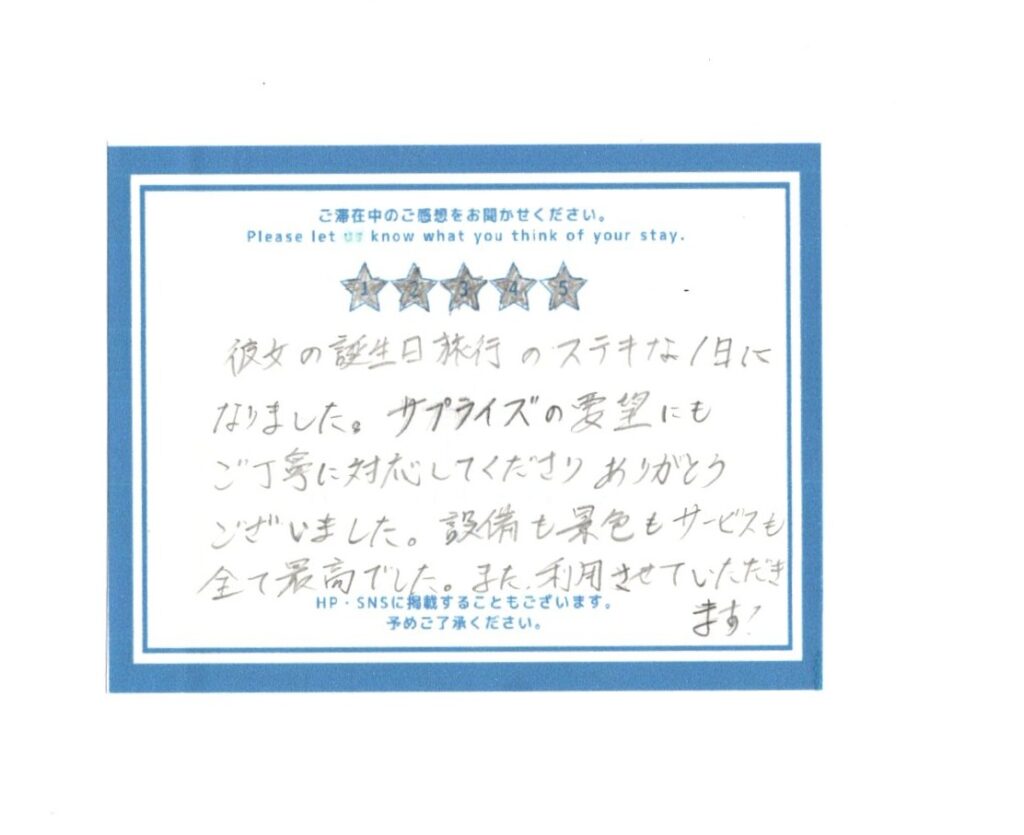 ご滞在中のご感想をお聞かせください。
Please let us know what you think of your stay.
1 2 3 4 5
彼女の誕生日旅行のステキな1日に
なりました。サプライズの要望にも
ご丁寧に対応してくださりありがとう
ございました。設備も景色もサービスも
全て最高でした。また、利用させていただき
ます!
HP・SNSに掲載することもございます。
予めご了承ください。